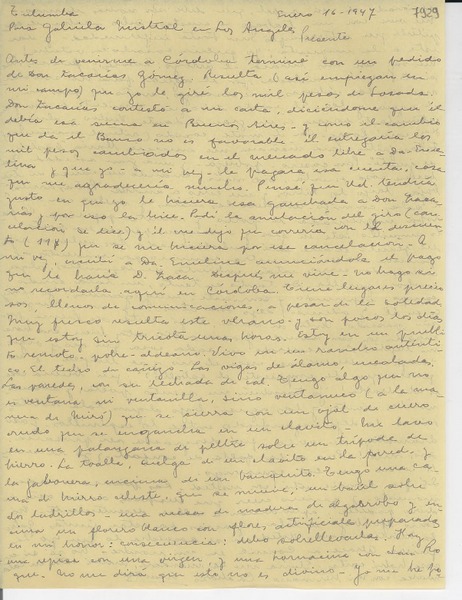 Tulumba Enero 16-1947 7929
Para Gabriela Mistral en Los Angeles
Presente
Antes de venirme a Córdoba terminé con un pedido
de Don Zacarías Gómez. Resulta (así empiezan en
mi campo) que yo le giré los mil pesos de Losada.
Don Zacarías contestó a mi carta, diciéndome que él
debía esa suma en Buenos Aires - y como el cambio
que da el Banco no es favorable él entregaría los
mil pesos cambiados en el mercado libre a Da. Emel
ina, y que yo - a mi vez - le pagara esa cuenta, cosa
que me agradecería mucho. Pensé que Ud. tendría
gusto en que yo le hiciera esa gauchada a Don Zaca
rías y por eso la hice. Pedí la anulación del giro (can
celación se dice) y él me dijo que correría con el descuen
to (11$) que se me hiciera por esa cancelación. A
mi vez, escribí a Da. Emelina anunciándole el pago
que le haría D. Zaca. Después me vine - no hago sino
recordarla aquí en Córdoba. Tiene lugares precio
sos, llenos de comunicaciones, a pesar de la soledad
Muy fresco resulta este verano - y son pocos los días
que estoy sin tricota unas horas. Estoy en un pueble
to remoto, pobre - aldeano. Vivo en un rancho auténti
co. El techo de cañizo. Las vigas de álamo, encaladas,
las paredes, con su lechada de cal. Tengo algo que no
es ventana, ni ventanilla, sino ventanuco (a la ma
nera de Miró) que se cierra con un ojal de cuero
crudo que se engancha en un clavito. Me lavo
en una palangana de peltre sobre un trípode de
hierro. La toalla cuelga de un clavito en la pared, y
la jabonera, encima de un banquito. Tengo una ca
ma de hierro celeste, que se mueve, un baúl sobre
dos ladrillos - una mesa de madera de algarrobo y en
cima un florero blanco con flores artificiales preparadas
en mi honor: consecuencia: debo sobrellevarlas. Hay
una repisa con una virgen y una hornacina con San Ro
que. No me dirá que esto no es divino - Ya me he po-